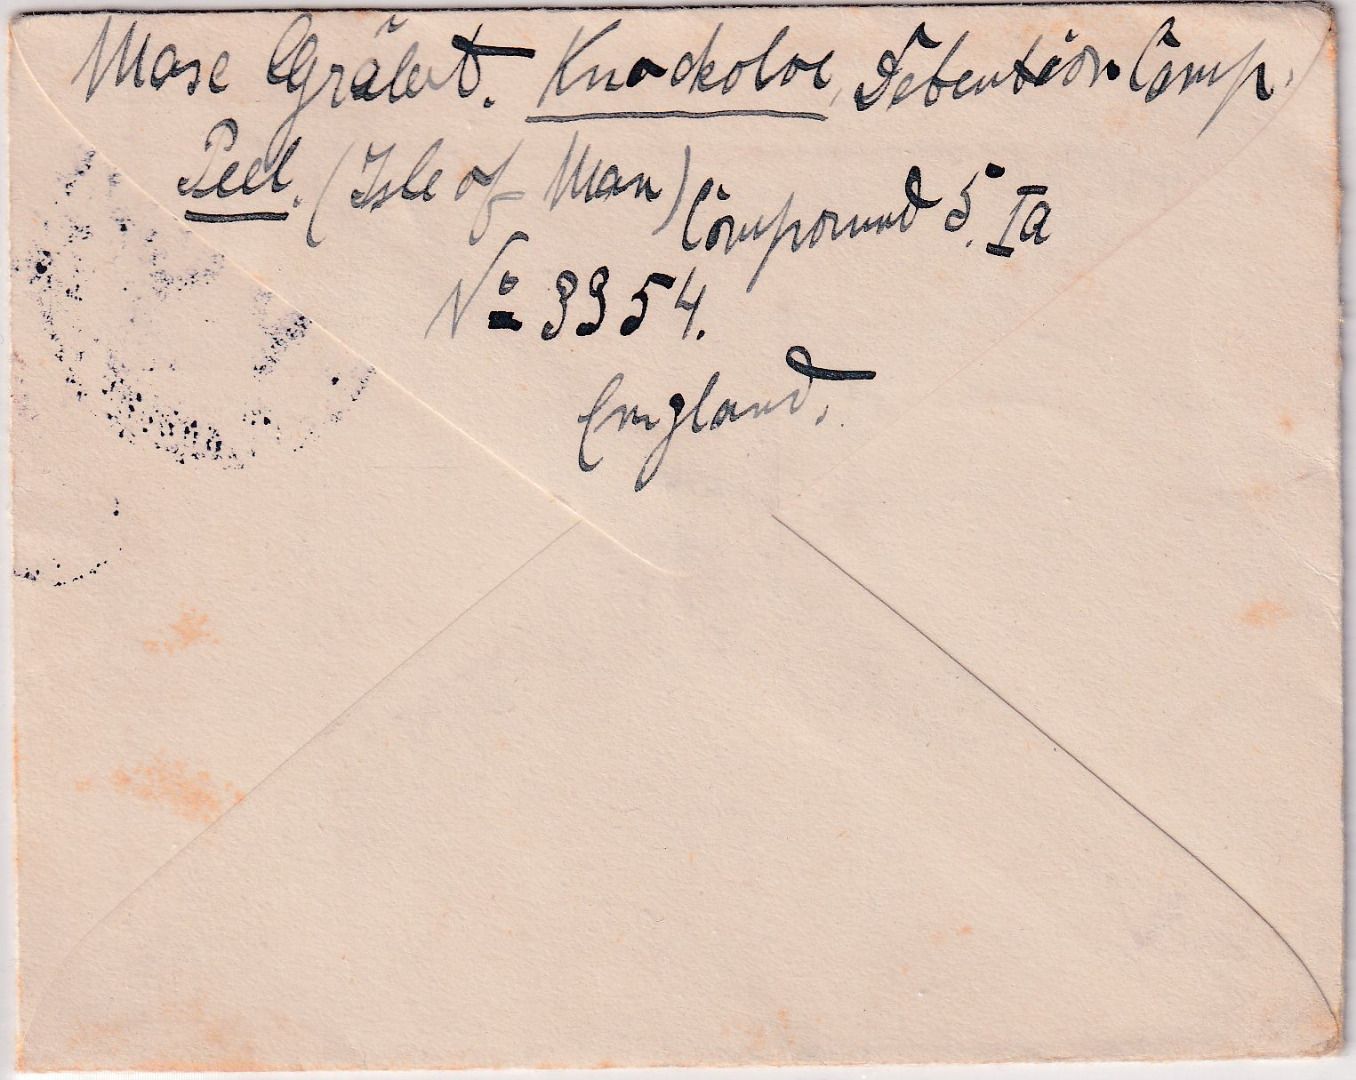 Maxe Gräbert. Knockoloe, Detention Comp.
Peel. (Isle of Man) Compound 5. Ia
No 3354.
England.